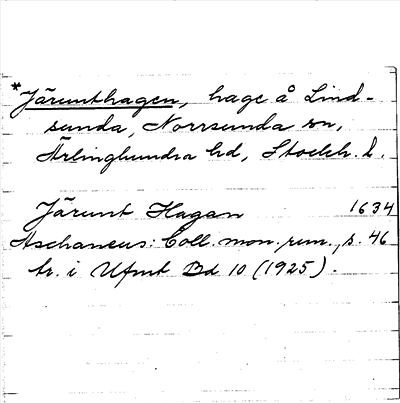 *Järunthagen, hage å Lind-
sunda, Norrsunda sn,
Ärlinghundra hd, Stockh. l.
Järunt Hagan 1634
Aschaneus: Coll. mon. run., s. 46
tr. i Ufmt Bd 10 (1925).